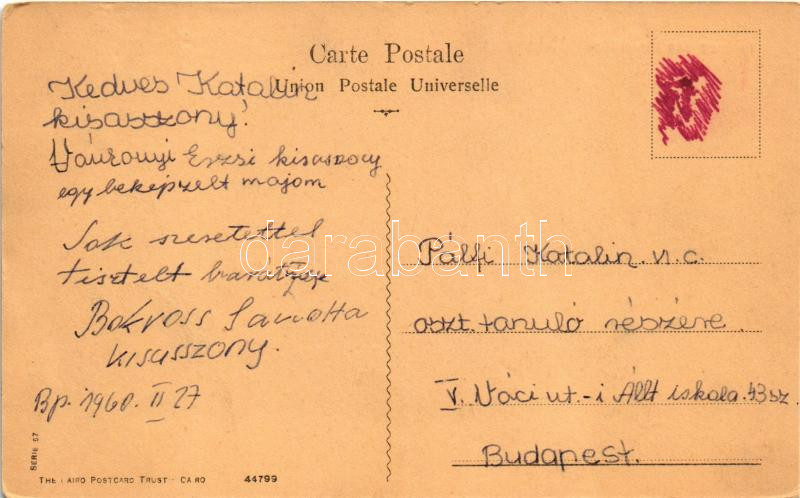 Carte Postale
Union Postale Universelle
Kedves Katalin
kisasszony!
Erzsi kisasszony
egy beképzelt majom
Sok szeretettel
tisztelt barátnője
Bokross Sarolta
kisasszony.
Bp. 1960. II 27
Pálfi Katalin VI. c.
oszt. tanuló részére.
V. Váci ut.-i Ált iskola. 43 sz.
Budapest.
darabanth
SERIE 57
THE CAIRO POSTCARD TRUST - CAIRO 44799